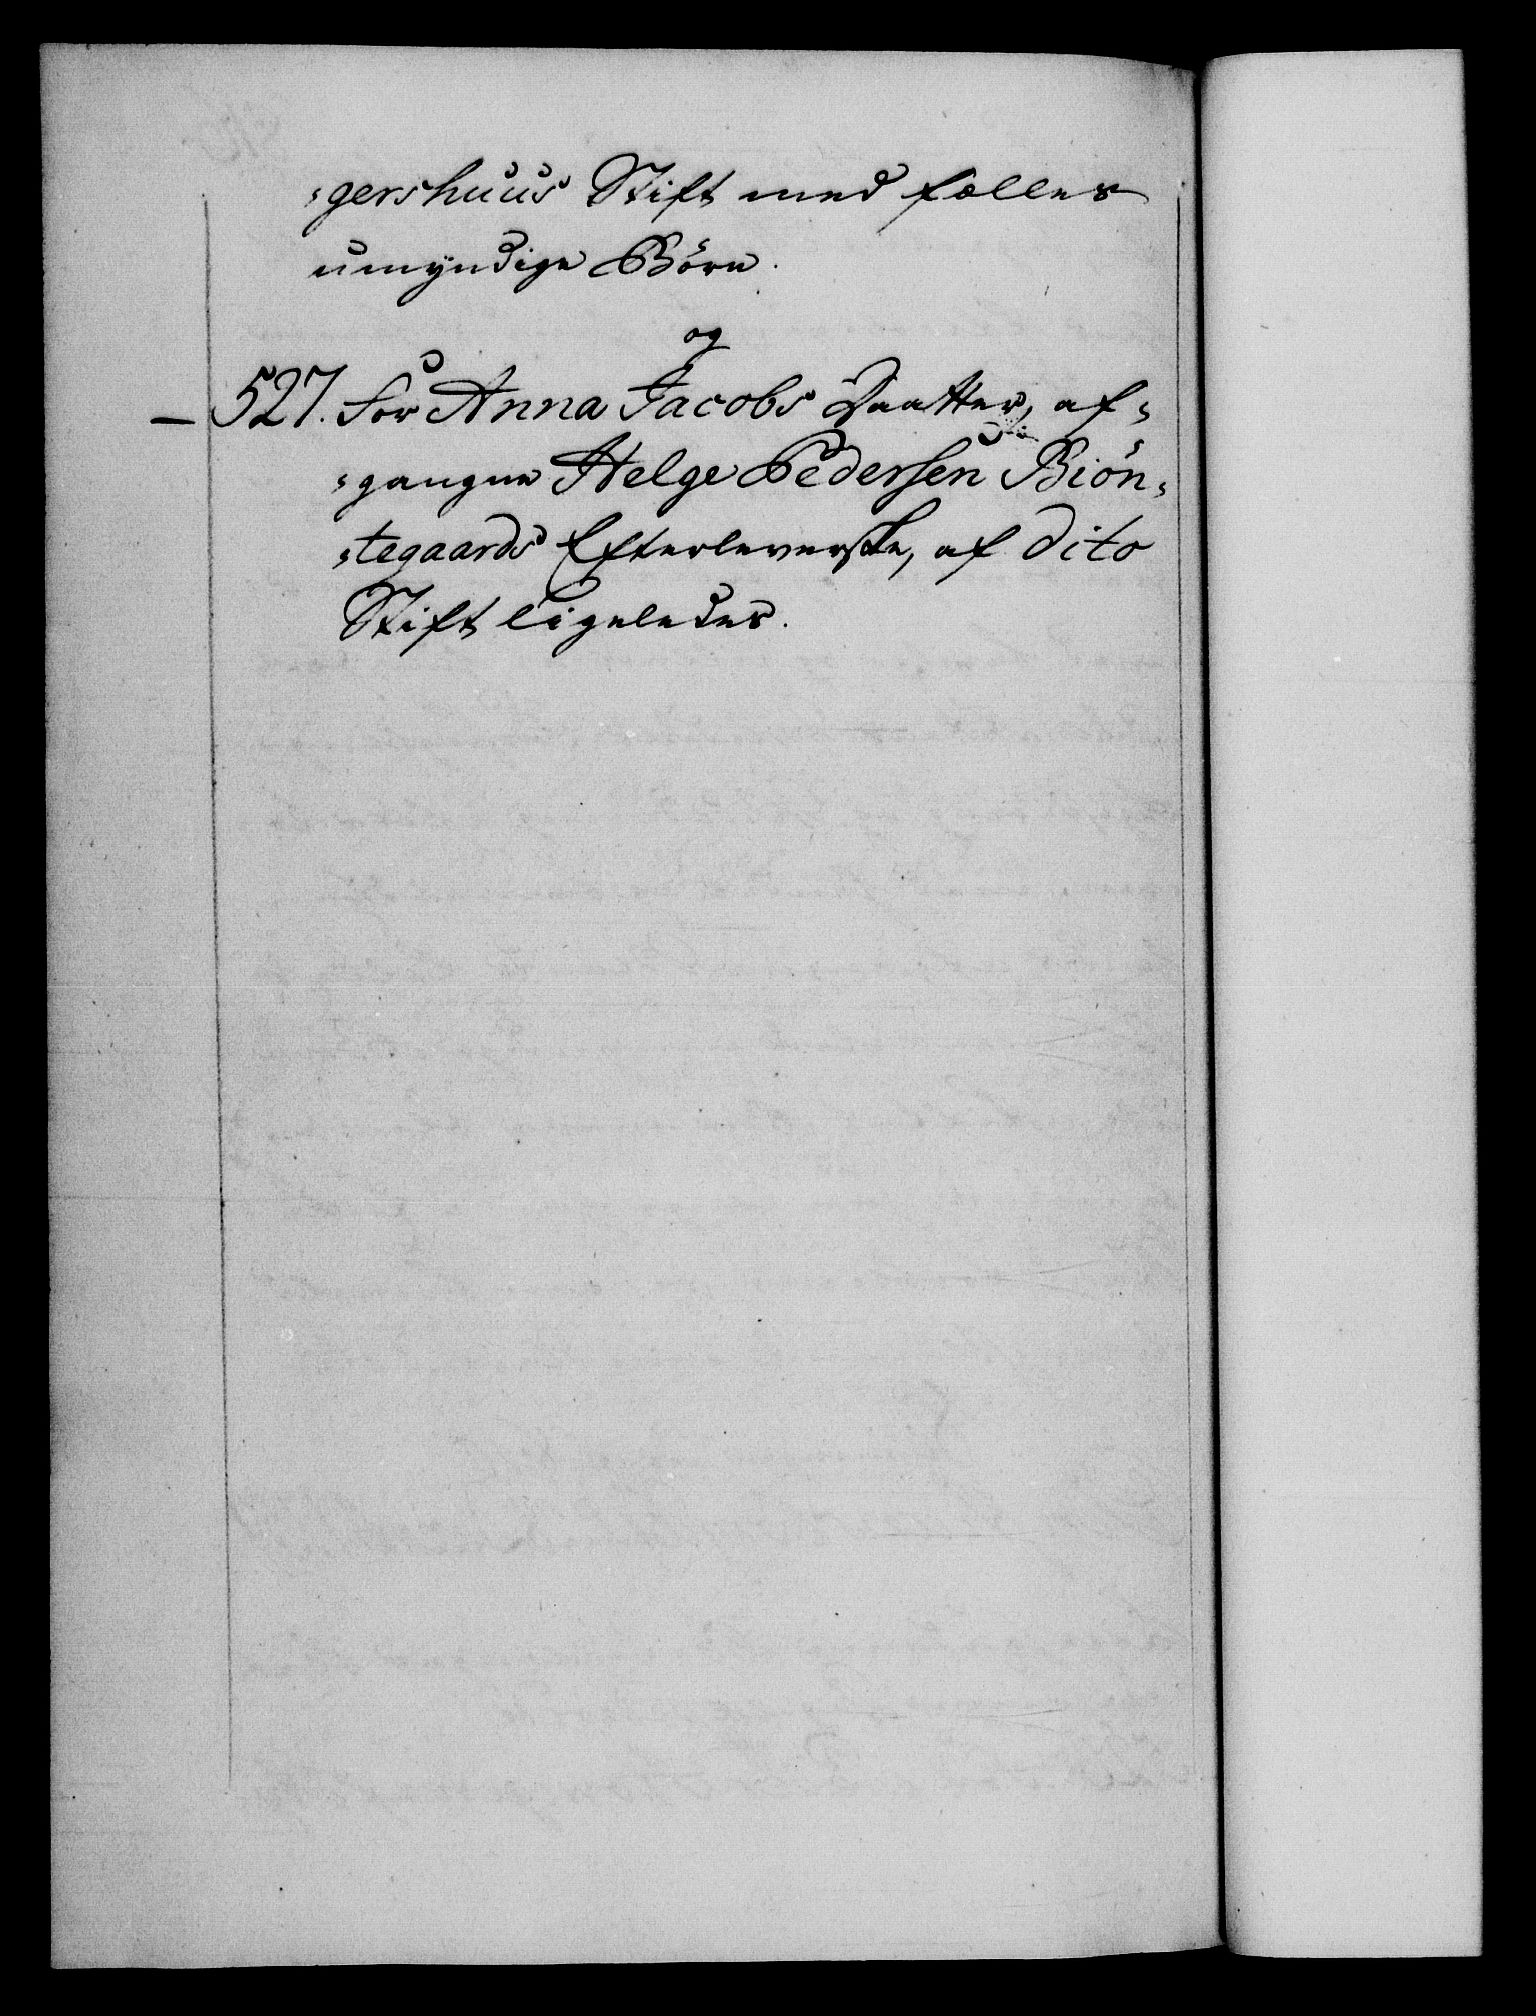 =gershuus Stift med fælles
umyndige Börn.
og
— 527. for Anna Jacobs Daatter, af=
=gangne Helge Pedersen Biön=
=tegaards Efterleverske, af dito
Stift ligeledes.